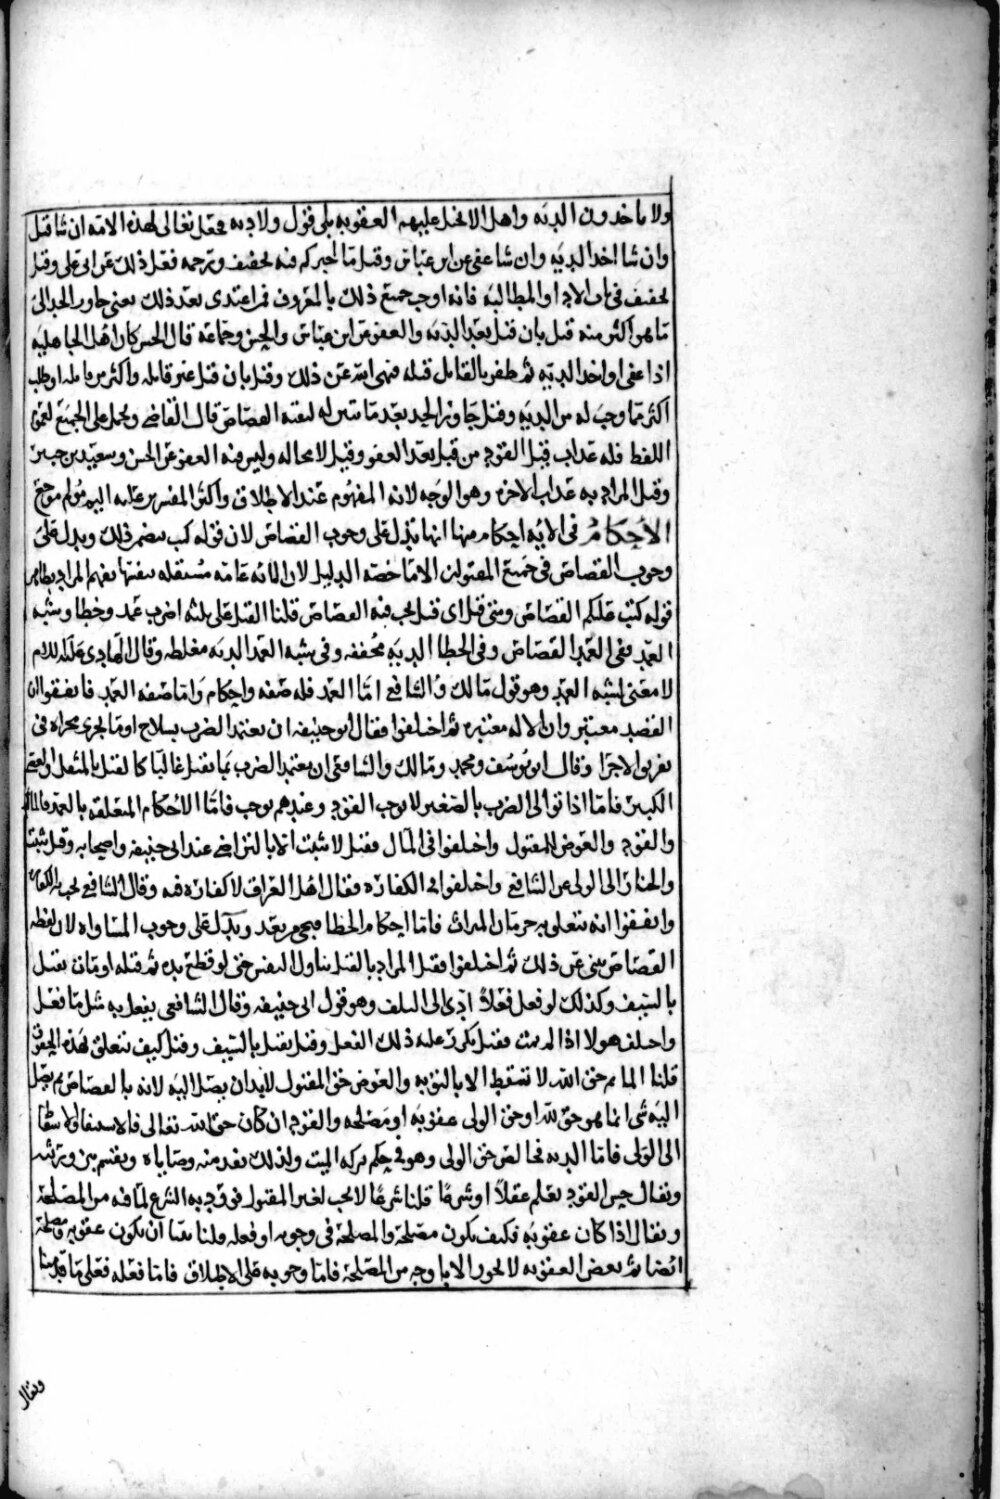 ولا ياخذون الديه واهل الانجيل عليهم العقوبه على قول ولا ديه فجعل تعالى لهذه الامه ان شا قتل
وان شا اخذ الديه وان شا عفى عن ابن عباس وقيل تاخيركم فيه تخفيف ورحمه فعل ذلك عن ابي علي وقيل
تخفيف في باب الادا والمطالبه فانه اوجب جميع ذلك بالمعروف فمن اعتدى بعد ذلك يعني جاوز الحد الى
ما هو اكثر منه قيل بان قتل بعد الديه والعفو عن ابن عباس والحسن وجماعه قال الحسن كان اهل الجاهليه
اذا عفى او اخذ الديه ثم ظفر بالقاتل قتله فنهى الله عن ذلك وقيل بان قتل غير قاتله واكثر من قاتله او طلب
اكثر مما وجب له من الديه وقيل جاوز الحد بعد ما تبين له كيفيه القصاص قال القاضي ويحمل على الجميع لعموم
اللفظ فله عذاب قيل القود من قبل بعد العفو وقيل لا محاله وليس فيه العفو عن الحسن وسعيد بن جبير
وقيل المراد به عذاب الاخره وهو الوجه لانه المفهوم عند الاطلاق واكثر المفسرين عليه اليم مولم موجع
الاحكام في الايه احكام منها انها تدل على وجوب القصاص لان قوله كتب يتضمن ذلك ويدل على
وجوب القصاص في جميع المقتولين الا ما خصه الدليل لان الايه عامه مستقله بنفسها يفهم المراد بظاهر
قوله كتب عليكم القصاص ومتى قيل اي قتل يجب فيه القصاص قلنا القتل على ثلثه اضرب عمد وخطا وشبه
العمد ففي العمد القصاص وفي الخطا الديه مخففه وفي شبه العمد الديه مغلظه وقال الهادي عليه السلام
لا معنى لشبه العمد وهو قول مالك والشافعي اما العمد فله صفه واحكام واما صفه العمد فاتفقوا ان
القصد معتبر وان الاله معتبره ثم اختلفوا فقال ابو حنيفه ان يعتمد الضرب بسلاح او ما يجري مجراه في
تفريق الاجزا وقال ابو يوسف ومحمد ومالك والشافعي ان يعتمد الضرب بما يقتل غالبا كالقتل بالمثقل والعصا
الكبير فاما اذا توالى الضرب بالصغير لا يوجب القود وعندهم يوجب فاما الاحكام المتعلقه بالعمد فالماثم
والقود والعوض للمقتول واختلفوا في المال فقيل لا يثبت الا بالتراضي عند ابي حنيفه واصحابه وقيل يثبت
والخيار الى الولي عن الشافعي واختلفوا في الكفاره فقال اهل العراق لا كفاره فيه وقال الشافعي تجب به الكفاره
واتفقوا انه يتعلق به حرمان الميراث فاما احكام الخطا فيجي من بعد ويدل على وجوب المساواه لان لفظه
القصاص يبنى عن ذلك ثم اختلفوا فقيل المراد بالقتل يتناول النفس حتى لو قطع يده ثم قتله او مات يقتل
بالسيف وكذلك لو فعل فعلا ادى الى التلف وهو قول ابي حنيفه وقال الشافعي يفعل به مثل ما فعل
واختلف هولا اذا لم يمت فقيل يكرر عليه ذلك الفعل وقيل يقتل بالسيف وقيل كيف تتعلق بهذه الحقوق
قلنا الماثم حق الله لا تسقط الا بالتوبه والعوض حق المقتول لابد ان يصل اليه لانه بالقصاص لم يصل
اليه شي انما هو حق لله او حق الولي عقوبه او مصلحه والقود ان كان حق لله تعالى فالاستيفا والاسقاط
الى الولي فاما الديه فخالص حق الولي وهو في حكم تركه الميت ولذلك ينفد منه وصاياه ويقسم بين ورثته
ويقال حسن القود يعلم عقلا او شرعا قلنا شرعا لا يجب لغير المقتول فورد به الشرع لما فيه من المصلحه
ويقال اذا كان عقوبه فكيف يكون مصلحه والمصلحه في وجوبه او فعله قلنا يمتنع ان يكون عقوبه ومصلحه
ايضا ثم بعض العقوبه لا تجوز الا با وجه من المصلحه فاما وجوبه على الاطلاق فاما فعله فعلى ما قدمنا
ويقال